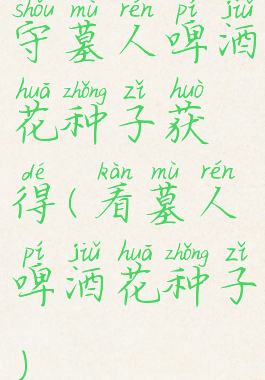 shǒu mù rén pí jiǔ
守墓人啤酒
huā zhǒng zǐ huò
花种子获
dé kàn mù rén
得(看墓人
pí jiǔ huā zhǒng zǐ
啤酒花种子
)